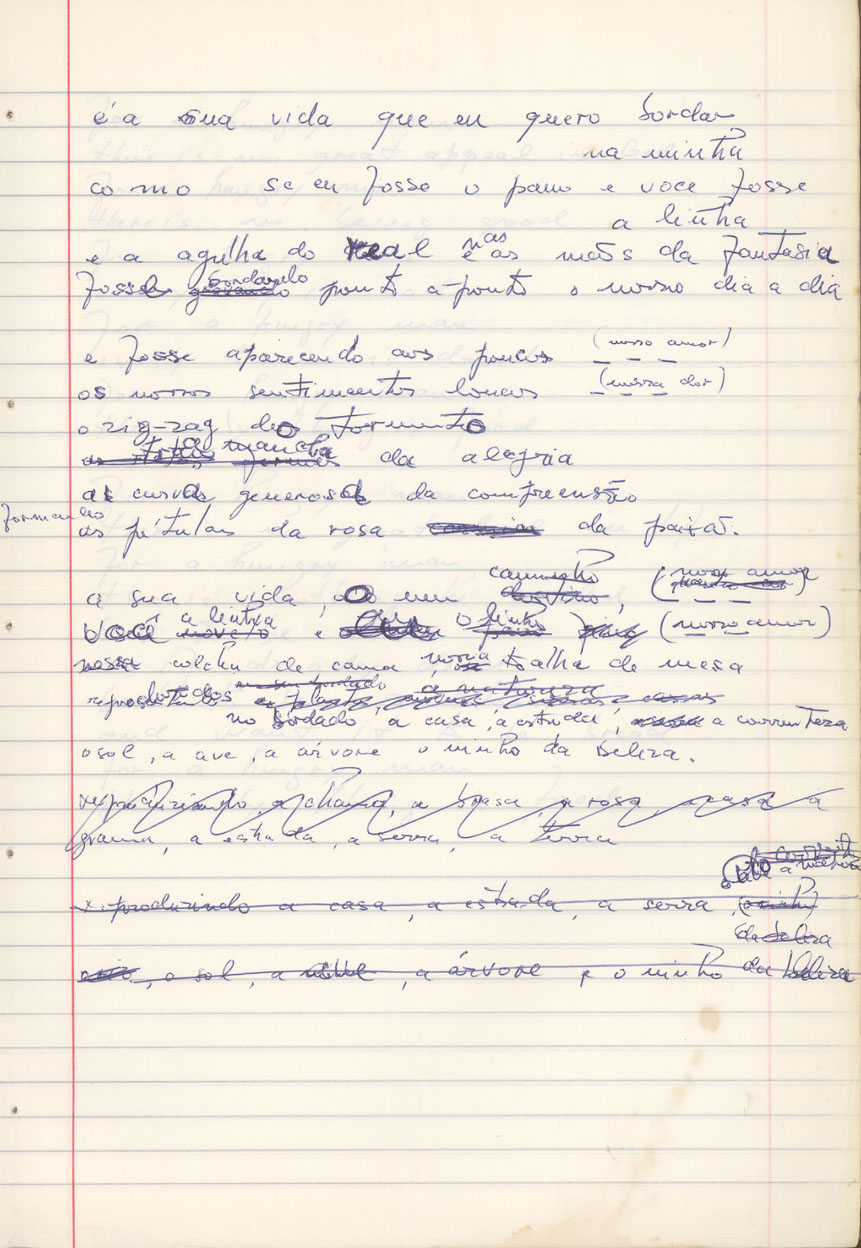 é a sua vida que eu quero bordar
na minha
como se eu fosse o pano e voce fosse
a linha
e a agulha do real nas mãos da fantasia
fosse bordando ponto a ponto o nosso dia a dia
e fosse aparecendo aos poucos (nosso amor)
os nossos sentimentos loucos (nossa dor)
o zig-zag do tormento
da alegria
a curva generosa da compreensão
formando as pétulas da rosa da paixão.
a sua vida o meu caminho, (nosso amor)
Você a linha e eu o linho (nosso amor)
nossa colcha de cama nossa toalha de mesa
reproduzidos
no bordado, a casa, a estrada, a correnteza
o sol, a ave, a árvore o ninho da beleza.
reproduzindo a chama, a brasa, a rosa, a casa a
grama, a estrada, a serra, a terra
a natureza
reproduzindo a casa, a estrada, a serra, (ninho)
da beleza
, o sol, a ave, a árvore e o ninho da beleza